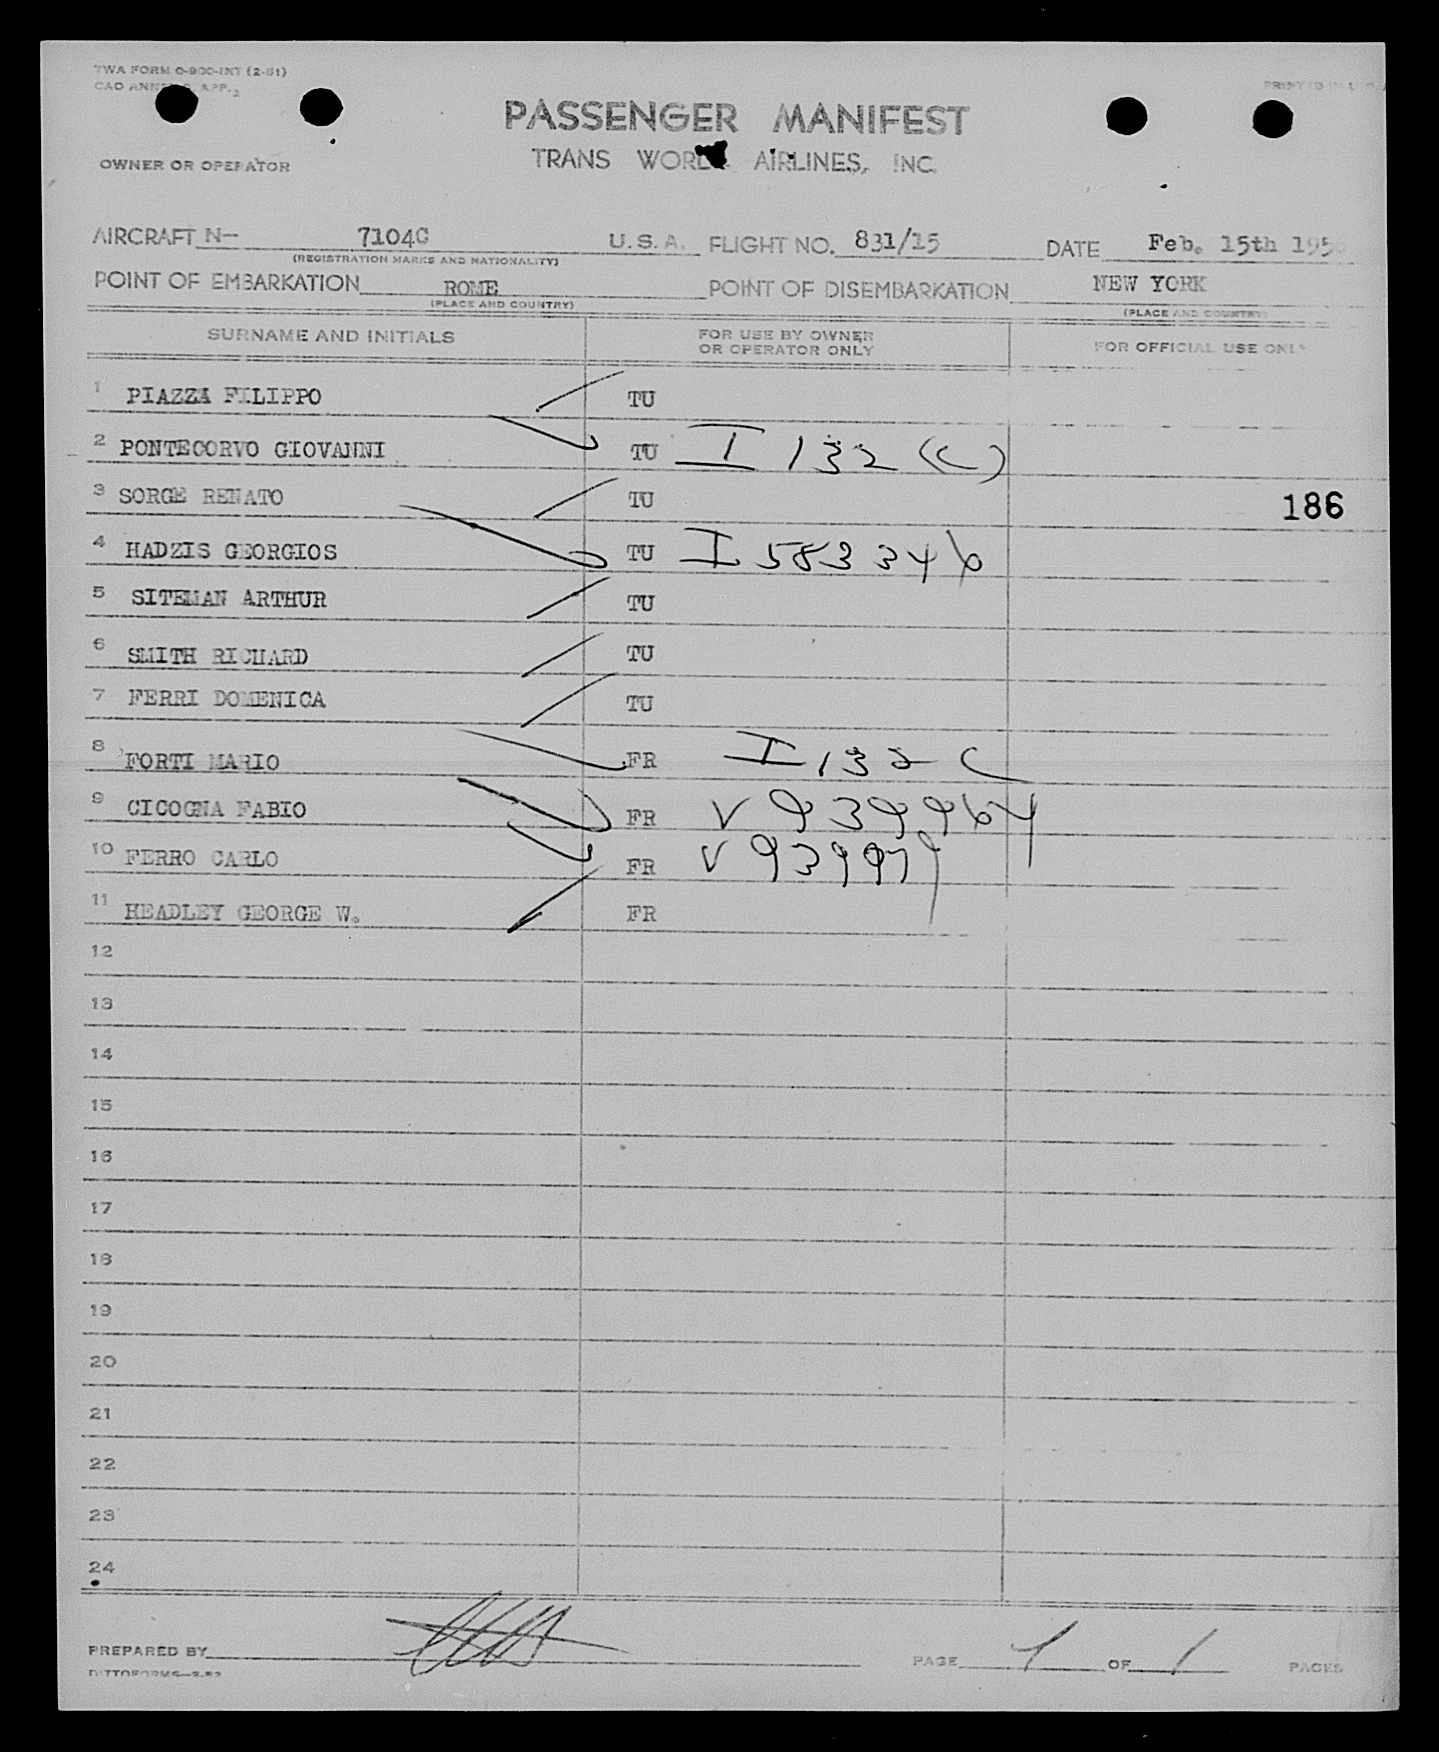 TWA FORM O-900-INT (2-51)
CAO ANNEX 9, APP. 2
PRINTED IN U.S.A.
PASSENGER MANIFEST
OWNER OR OPERATOR
TRANS WORLD AIRLINES, INC.
AIRCRAFT N- 7104C U.S.A. FLIGHT NO. 831/15 DATE Feb. 15th 195
(REGISTRATION MARKS AND NATIONALITY)
POINT OF EMBARKATION ROME POINT OF DISEMBARKATION NEW YORK
(PLACE AND COUNTRY) (PLACE AND COUNTRY)
SURNAME AND INITIALS FOR USE BY OWNER OR OPERATOR ONLY FOR OFFICIAL USE ONLY
1 PIAZZA FILIPPO TU
2 PONTECORVO GIOVANNI TU I 132 (C)
3 SORGE RENATO TU 186
4 HADZIS GEORGIOS TU I 583346
5 SITEMAN ARTHUR TU
6 SMITH RICHARD TU
7 FERRI DOMENICA TU
8 FORTI MARIO FR I 132 C
9 CICOGNA FABIO FR V 939964
10 FERRO CARLO FR V 939979
11 HEADLEY GEORGE W. FR
12
13
14
15
16
17
18
19
20
21
22
23
24
PREPARED BY PAGE 1 OF 1 PAGES
DITTOFORMS-2-52